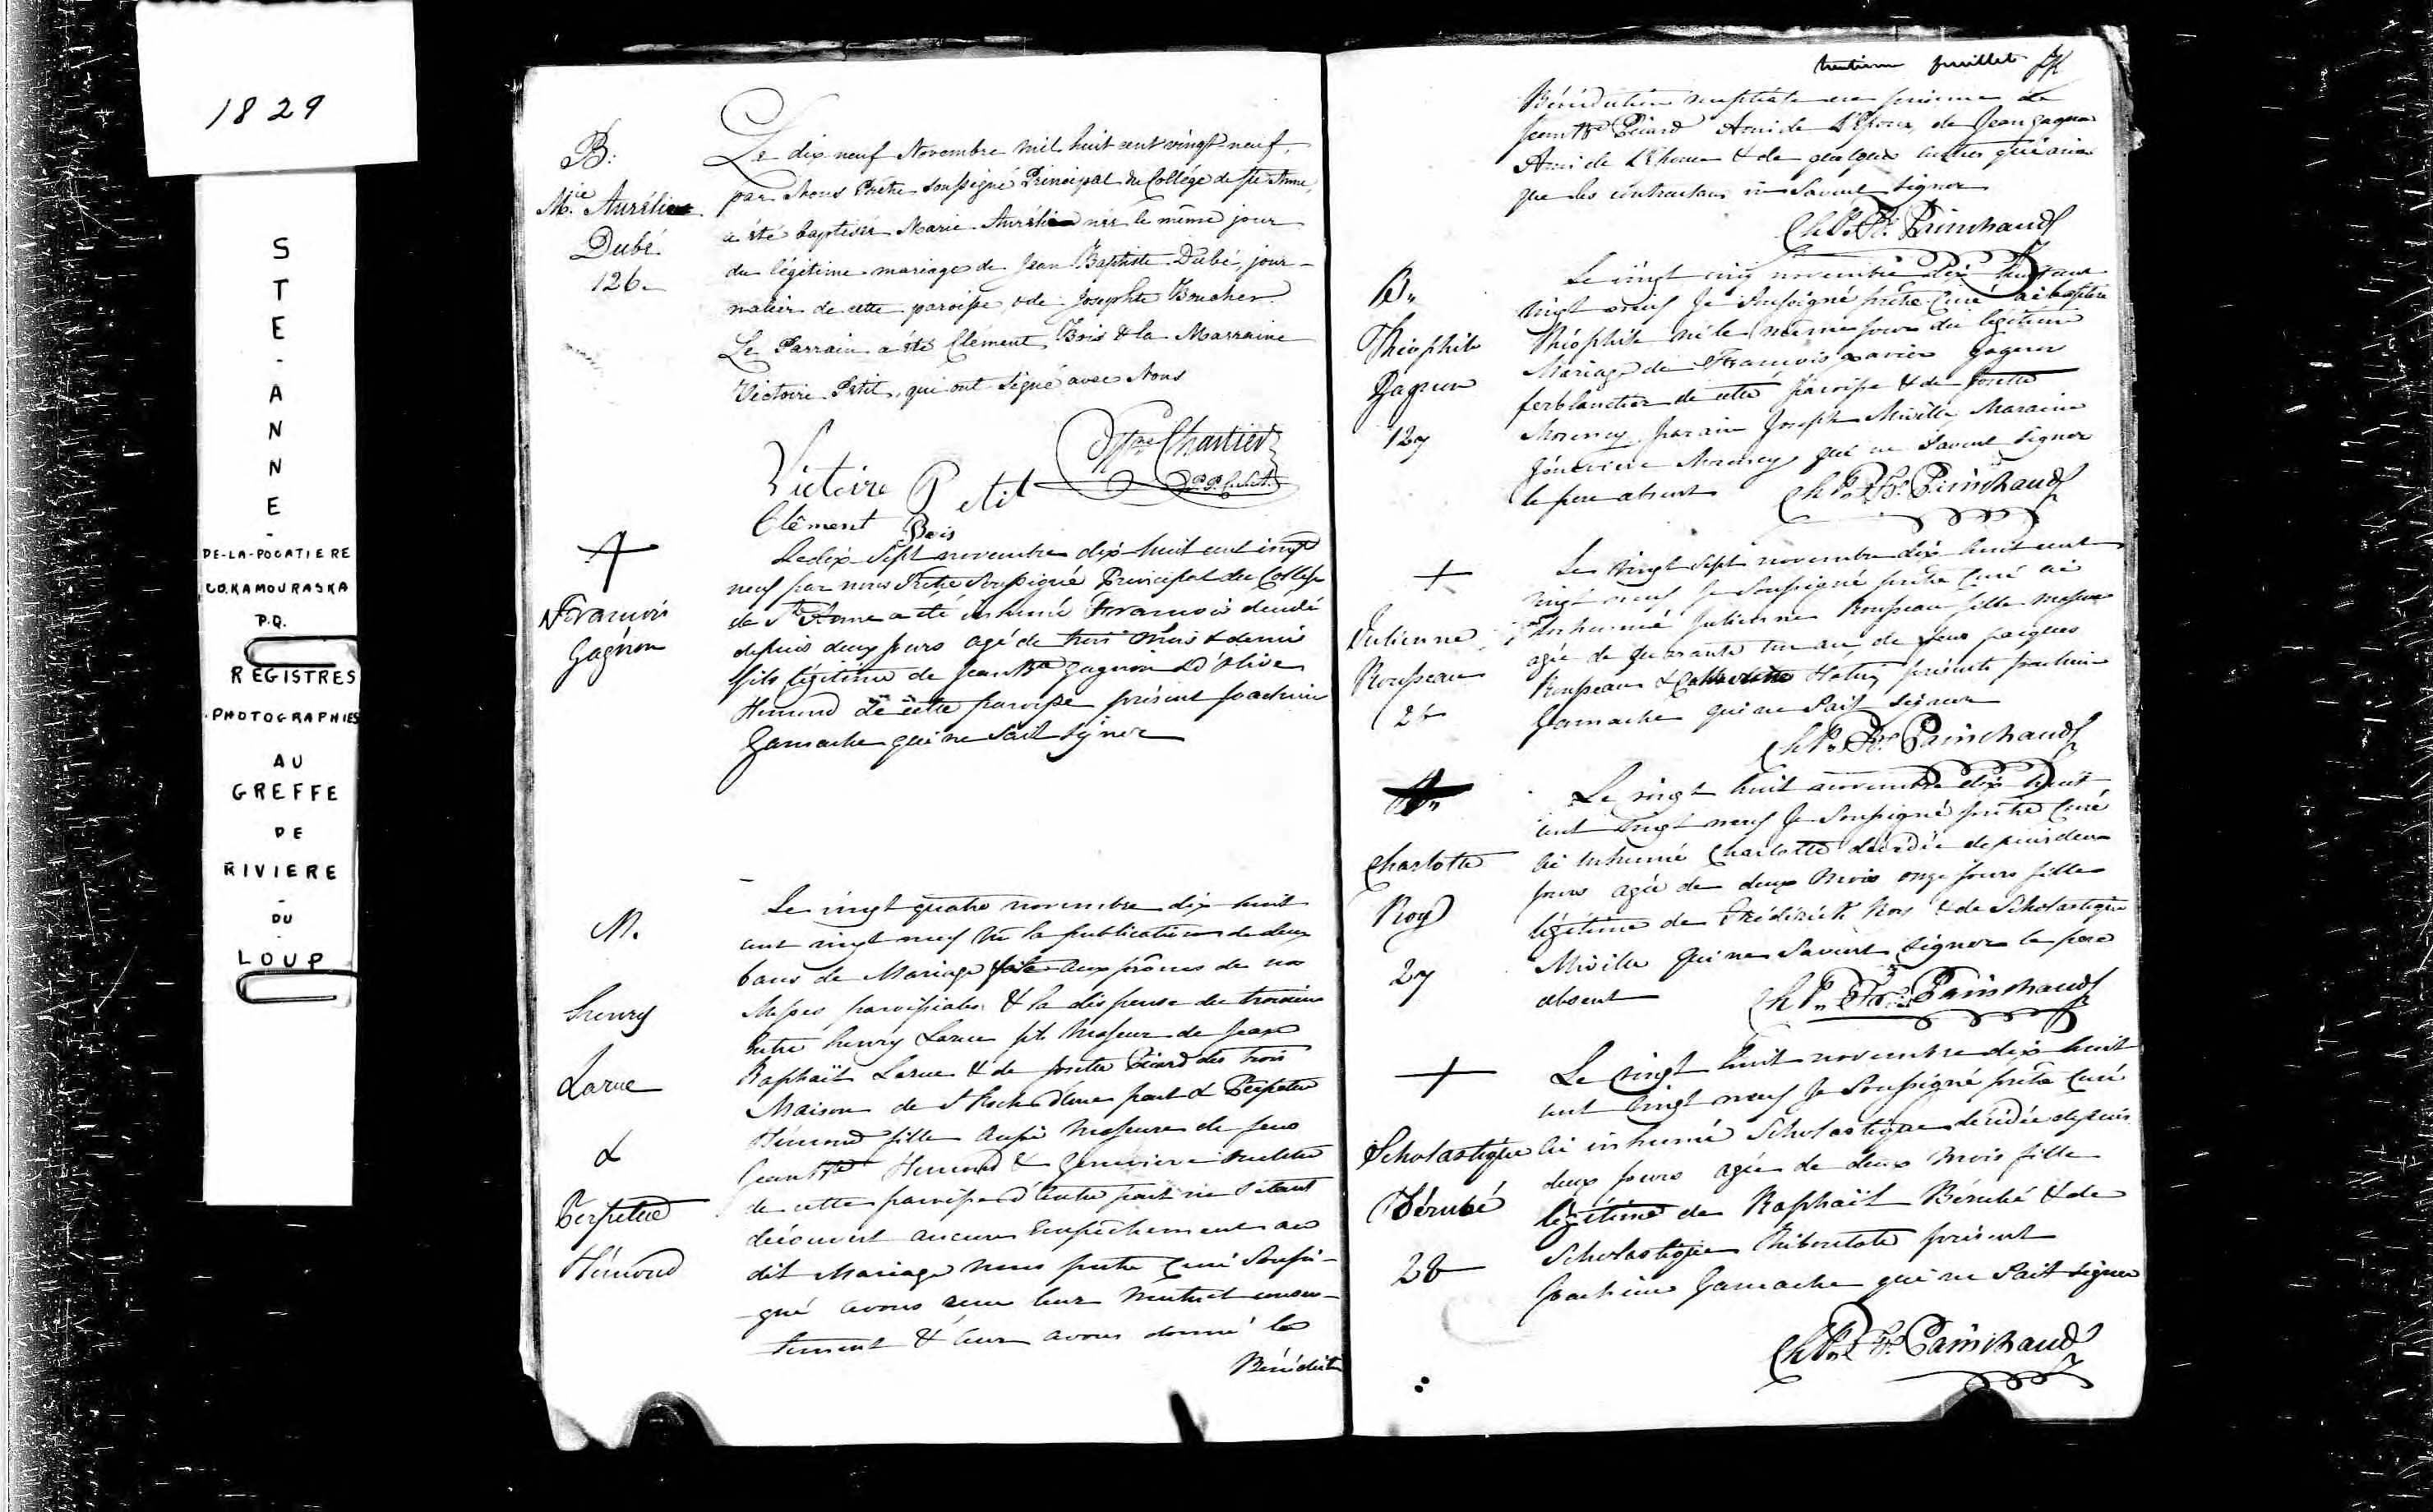 1829
STE-ANNE-
DE-LA-POCATIERE
CO. KAMOURASKA
P.Q.
REGISTRES
PHOTOGRAPHIES
AU
GREFFE
DE
RIVIERE
-
DU
-
LOUP
B:
Mie Aurélie
Dubé
126
Le dix neuf Novembre mil huit cent vingt-neuf,
par Nous Prêtre soussigné Principal du Collége de Ste Anne,
a été baptisée Marie Aurélie née le même jour
du légitime mariage de Jean Baptiste Dubé, jour-
nalier de cette paroisse & de Josephte Boucher.
Le Parrain a été Clément Bois & la Marraine
Victoire Petit, qui ont signé avec Nous
Chartier
Victoire Petit
Clément Bois
+
François
Gagnon
Le dix sept novembre dix-huit cent vingt
neuf par nous Prêtre Soussigné Principal du Collège
de Ste Anne a été inhumé François décédé
depuis deux jours agé de trois mois & demi
fils légitime de Jean Bte Gagnon & d'Olive
Hémond de cette paroisse présent Joachim
Gamache qui ne sait signer
M.
henry
Larue
&
Perpetue
Hémond
Le vingt quatre novembre dix huit
cent vingt neuf vu la publication de deux
bans de Mariage faite aux prônes de nos
Messes paroissiales & la dispense du troisième
Entre henry Larue fils Majeur de Jean
Raphaël Larue & de Josette Picard des trois
Maison de St Roch d'une part & Perpetue
Hémond fille aussi Majeure de feue
Jean Bte Hemond & Genevieve
de cette paroisse d'autre part ne s'étant
découvert aucun Empêchement au
dit Mariage nous pretre Curé Soussi-
gné avons reçu leur Mutuel consen-
tement & leur avons donné la
Bénédiction
trentieme feuillet
Bénédiction nuptiale en présence de
Jean Bte Picard Ami de l'Epoux, de Jean Gagnon
Ami de l'Epouse & de quelques autres qui ainsi
que les contractans ne savent signer
Ch. F. Painchaud
B.
Théophile
Gagnon
127
Le vingt cinq novembre dix huit cent
vingt neuf Je Soussigné prêtre Curé ai baptisé
Théophile né le même jour du légitime
Mariage de François xavier gagnon
ferblantier de cette paroisse & de Josette
Morency parain Joseph Miville Maraine
Génevieve Morency qui ne savent signer
le pere absent Ch. F. Painchaud
+
Julienne
Rousseau
26
Le vingt sept novembre dix huit cent
vingt neuf Je Soussigné prêtre Curé ai
Inhumé Julienne Rousseau fille majeure
agée de quarante un an, de feus Jacques
Rousseau & présents Joachim
Gamache qui ne sait signer
Ch. F. Painchaud
Charlotte
Roy
27
Le vingt huit novembre dix huit
cent vingt neuf Je Soussigné prêtre Curé
ai Inhumé Charlotte décédée depuis deux
jours agée de deux mois onze jours fille
légitime de Frédérick Roy & de Scholastique
Miville qui ne savent signer le pere
absent Ch. F. Painchaud
+
Scholastique
Bérubé
28
Le vingt huit novembre dix huit
cent vingt neuf Je Soussigné prêtre Curé
ai inhumé Scholastique décédée depuis
deux jours agée de deux Mois fille
légitime de Raphaël Bérubé & de
Scholastique Thiboutote présent
Joachim Gamache qui ne sait signer
Ch. F. Painchaud